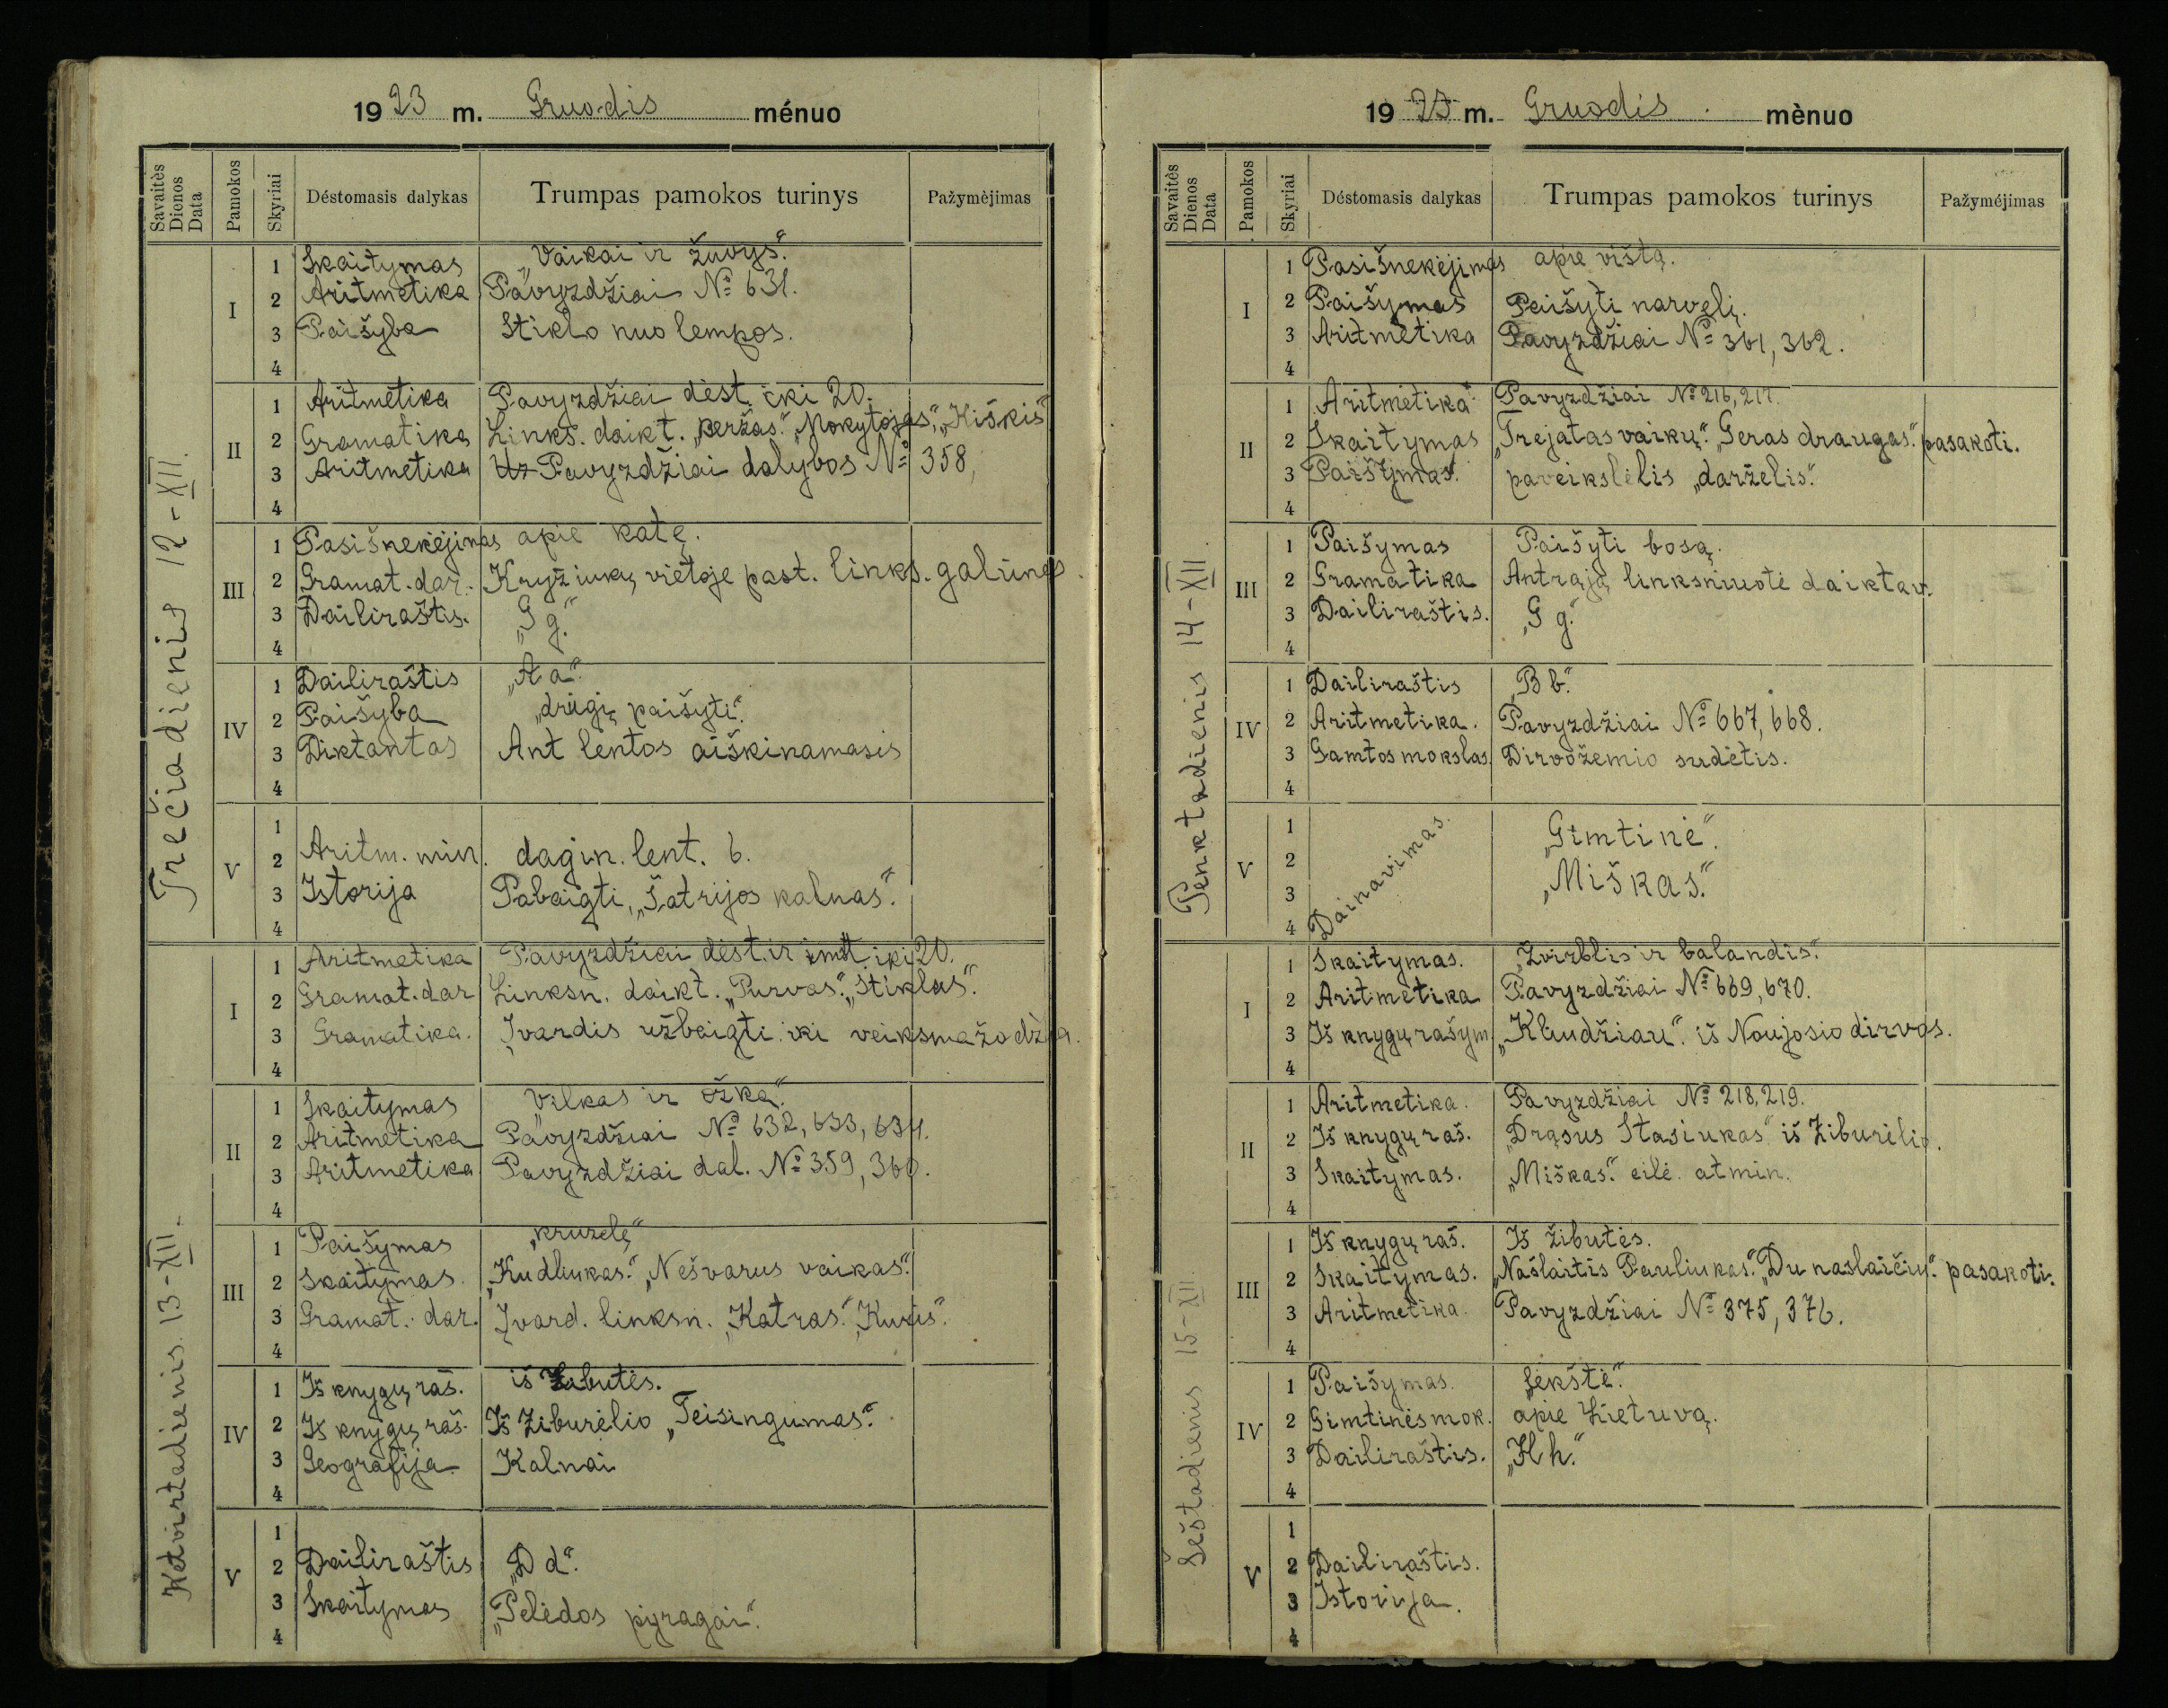 1923 m. Gruodis ménuo
Savaitės Dienos Data
Pamokos
Skyriai
Déstomasis dalykas
Trumpas pamokos turinys
Pažymėjimas
Trečiadienis 12-XII.
I
1 Skaitymas „Vaikai ir žuvys“.
2 Aritmetika Pavyzdžiai № 631.
3 Paišyba Stiklo nuo lempos.
4
II
1 Aritmetika Pavyzdžiai dėst. iki 20.
2 Gramatika Links. daikt. „Beržas“. „Mokytojas“, „Kiškis“
3 Aritmetika Uz Pavyzdžiai dalybos № 358,
4
III
1 Pasišnekėjimas apie katę.
2 Gramat. dar. Kryžiukų vietoje past. links. galūnes.
3 Dailiraštis. „G g.“
4
IV
1 Dailiraštis „A a“.
2 Paišyba „drugį paišyti“.
3 Diktantas Ant lentos aiškinamasis
4
V
1
2 Aritm. min. dagin. lent. 6.
3 Istorija Pabaigti, „Šatrijos kalnas“.
4
Ketvirtadienis 13-XII.
I
1 Aritmetika Pavyzdžiai dėst. ir imt iki 20.
2 Gramat. dar Linksn. daikt. „Purvas“. „Stiklas“.
3 Gramatika. Įvardis užbaigti iki veiksmažodžia.
4
II
1 Skaitymas „Vilkas ir ožka“.
2 Aritmetika Pavyzdžiai № 632, 633, 634.
3 Aritmetika Pavyzdžiai dal. № 359, 360.
4
III
1 Paišymas „kruzelę“
2 Skaitymas. „Kudliukas“. „Nešvarus vaikas“.
3 Gramat. dar. Įvard. linksn. „Katras“. „Kuris“.
4
IV
1 Iš knygų raš. iš Žibutės.
2 Iš knygų raš. Iš Žiburėlio „Teisingumas“.
3 Geografija. Kalnai
4
V
1
2 Dailiraštis „D d“.
3 Skaitymas „Pelėdos pyragai“.
4
1923 m. Gruodis mėnuo
Savaitės Dienos Data
Pamokos
Skyriai
Déstomasis dalykas
Trumpas pamokos turinys
Pažyméjimas
Penktadienis 14-XII.
I
1 Pasišnekėjimas apie vištą.
2 Paišymas Paišyti narvelį.
3 Aritmetika Pavyzdžiai № 361, 362.
4
II
1 Aritmetika Pavyzdžiai № 216, 217.
2 Skaitymas „Trejatas vaikų“. „Geras draugas“. pasakoti.
3 Paišymas. paveikslėlis „darželis“.
4
III
1 Paišymas Paišyti bosą.
2 Gramatika Antrąją linksniuotė daiktav.
3 Dailiraštis. „G g.“
4
IV
1 Dailiraštis „B b.“
2 Aritmetika. Pavyzdžiai № 667, 668.
3 Gamtos mokslas. Dirvožemio sudėtis.
4
V
Dainavimas.
1 „Gimtinė“.
2
3 „Miškas.“
4
Šeštadienis 15-XII.
I
1 Skaitymas. „Žvirblis ir balandis“.
2 Aritmetika Pavyzdžiai № 669, 670.
3 Iš knygų rašym. „Klaudžiau“. iš Naujosio dirvos.
4
II
1 Aritmetika. Pavyzdžiai № 218, 219.
2 Iš knygų raš. „Drąsus Stasiukas“ iš Žiburėlio.
3 Skaitymas. „Miškas“. eilė. atmin.
4
III
1 Iš knygų raš. Iš žibutės.
2 Skaitymas. „Našlaitis Pauliukas“. „Du naslaičiu“. pasakoti.
3 Aritmetika. Pavyzdžiai № 375, 376.
4
IV
1 Paišymas. „Lėkštė“.
2 Gimtinės mok. apie Lietuvą.
3 Dailiraštis. „H h.“
4
V
1
2 Dailiraštis.
3 Istorija.
4